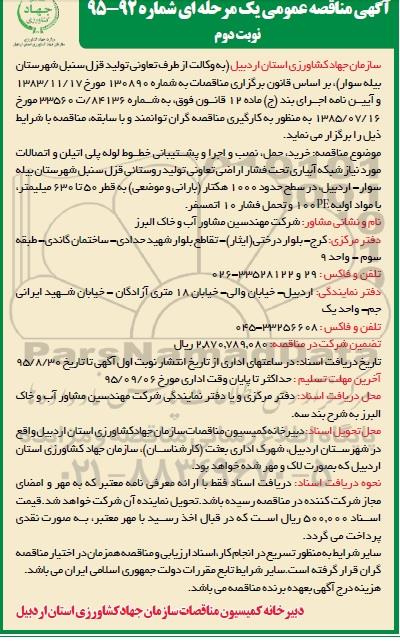 جهاد
وزارت جهاد کشاورزی
سازمان جهاد کشاورزی استان اردبیل
آگهی مناقصه عمومی یک مرحله ای شماره ۹۲-۹۵
نوبت دوم
سازمان جهاد کشاورزی استان اردبیل (به وکالت از طرف تعاونی تولید قزل سنبل شهرستان
بیله سوار)، بر اساس قانون برگزاری مناقصات به شماره ۱۳۰۸۹۰ مورخ ۱۳۸۳/۱۱/۱۷
و آیین نامه اجرای بند (ج) ماده ۱۲ قانون فوق، به شماره ۸۴۱۳۶/ت ۳۳۵۶۰ مورخ
۱۳۸۵/۰۷/۱۶ به منظور به کارگیری مناقصه گران توانمند و با سابقه، مناقصه با شرایط
ذیل را برگزار می نماید.
موضوع مناقصه: خرید، حمل، نصب و اجرا و پشتیبانی خطوط لوله پلی اتیلن و اتصالات
مورد نیاز شبکه آبیاری تحت فشار اراضی تعاونی تولید روستائی قزل سنبل شهرستان بیله
سوار- اردبیل، در سطح حدود ۱۰۰۰ هکتار (بارانی و موضعی) به قطر ۵۰ تا ۶۳۰ میلیمتر،
با مواد اولیه PE۱۰۰ و تحمل فشار ۱۰ اتمسفر.
نام و نشانی مشاور: شرکت مهندسین مشاور آب و خاک البرز
دفتر مرکزی: کرج- بلوار درختی(ایثار)- تقاطع بلوار شهید حدادی- ساختمان گاندی- طبقه
سوم - واحد ۹
تلفن و فاکس : ۲۹ و ۳۳۵۲۸۱۲۲-۰۲۶
دفتر نمایندگی: اردبیل- خیابان والی- خیابان ۱۸ متری آزادگان - خیابان شهید ایرانی
جم- واحد یک
تلفن و فاکس : ۳۳۲۵۶۶۰۸-۰۴۵
تضمین شرکت در مناقصه: ۲,۸۷۰,۷۸۹,۰۸۰ ریال
تاریخ دریافت اسناد: در ساعتهای اداری از تاریخ انتشار نوبت اول آگهی تا تاریخ ۹۵/۸/۳۰
آخرین مهلت تسلیم : حداکثر تا پایان وقت اداری مورخ ۹۵/۰۹/۰۶
محل دریافت اسناد: دفتر مرکزی و یا دفتر نمایندگی شرکت مهندسین مشاور آب و خاک
البرز به شرح بند سه.
محل تحویل اسناد: دبیرخانه کمیسیون مناقصات سازمان جهاد کشاورزی استان اردبیل واقع
در شهرستان اردبیل، شهرک اداری بعثت (کارشناسان)، سازمان جهاد کشاورزی استان
اردبیل که بصورت لاک و مهر شده خواهد بود.
نحوه دریافت اسناد: دریافت اسناد فقط با ارائه معرفی نامه معتبر که به مهر و امضای
مجاز شرکت کننده در مناقصه رسیده باشد، تحویل نماینده آن شرکت خواهد شد. قیمت
اسناد ۵۰۰,۰۰۰ ریال است که در قبال اخذ رسید با مهر معتبر، به صورت نقدی
پرداخت می گردد.
سایر شرایط به منظور تسریع در انجام کار، اسناد ارزیابی و مناقصه همزمان در اختیار مناقصه
گران قرار گرفته است. سایر شرایط تابع مقررات دولت جمهوری اسلامی ایران می باشد.
هزینه درج آگهی بعهده برنده مناقصه می باشد.
دبیرخانه کمیسیون مناقصات سازمان جهاد کشاورزی استان اردبیل